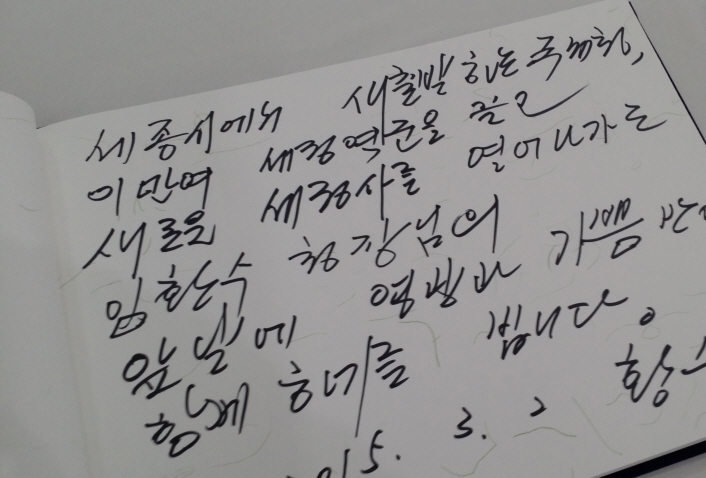 세종시에서 새출발 하는 국세청,
이만여 세정역군을 끌고
새로운 세정사를 열어나가는
임환수 청장님의
앞날에 영광과 가쁨만이
함께 하기를 빕니다.
2015. 3. 2 황